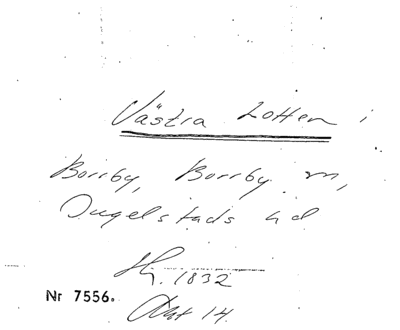 Västra Lotten i
Borrby, Borrby sn,
Ingelstads hd
Hy. 1832
Nr 7556.
Akt 14.